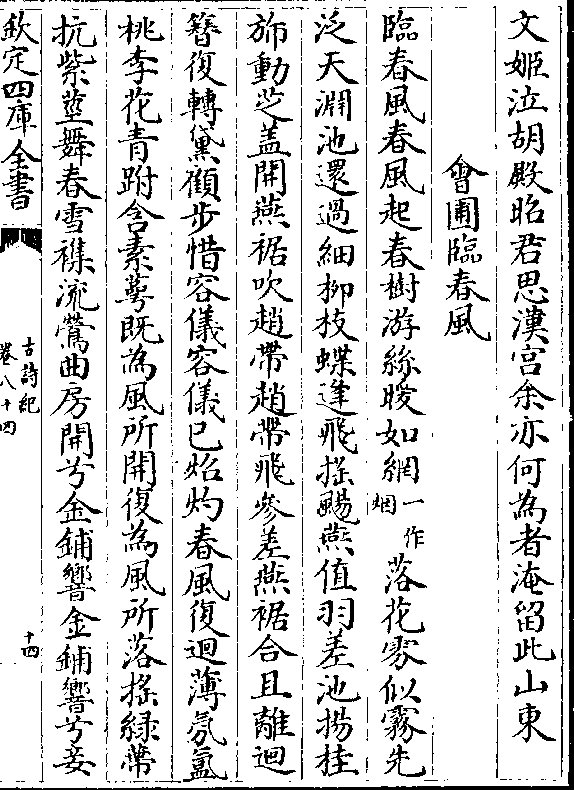 文姬泣胡殿昭君思漢宫余亦何為者淹留此山東
㑹圃臨春風
臨春風春風起春樹游絲暖如網一作烟落花雰似霧先
泛天淵池還過細柳枝蝶逢飛摇颺燕值羽差池揚桂
斾動芝盖開燕裾吹趙帶趙帶飛參差燕裾合且離迴
簪復轉黛顧步惜容儀容儀已炤灼春風復迴薄氛氲
桃李花青跗含素萼既為風所開復為風所落摇綠蔕
抗紫莖舞春雪襍流鶯曲房開兮金鋪響金鋪響兮妾
欽定四庫全書
古詩紀
卷八十四
十四